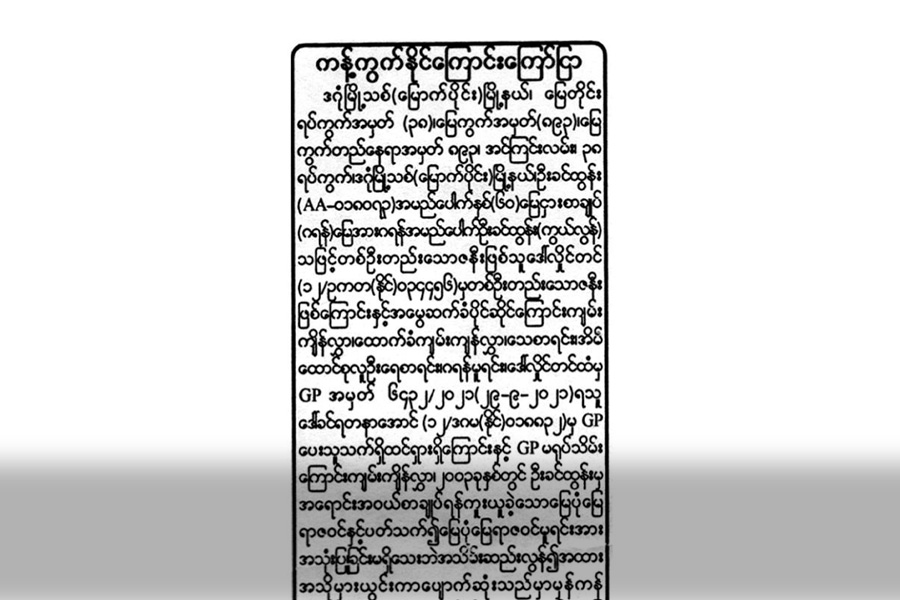 ကန့်ကွက်နိုင်ကြောင်းကြော်ငြာ
ဒဂုံမြို့သစ်(မြောက်ပိုင်း)မြို့နယ်၊ မြေတိုင်း
ရပ်ကွက်အမှတ် (၃၈)၊မြေကွက်အမှတ်(၈၉၃)၊မြေ
ကွက်တည်နေရာအမှတ် ၈၉၃၊ အင်ကြင်းလမ်း၊ ၃၈
ရပ်ကွက်၊ဒဂုံမြို့သစ်(မြောက်ပိုင်း)မြို့နယ်၊ဦးခင်ထွန်း
(AA-၀၁၈၀၇၃)အမည်ပေါက်နှစ်(၆၀)မြေငှားစာချုပ်
(ဂရန်)မြေအားဂရန်အမည်ပေါက်ဦးခင်ထွန်း(ကွယ်လွန်)
သဖြင့်တစ်ဦးတည်းသောဇနီးဖြစ်သူဒေါ်လှိုင်တင်
(၁၂/ဥကတ(နိုင်)၀၃၄၄၅၆)မှတစ်ဦးတည်းသောဇနီး
ဖြစ်ကြောင်းနှင့်အမွေဆက်ခံပိုင်ဆိုင်ကြောင်းကျမ်း
ကျိန်လွှာ၊ထောက်ခံကျမ်းကျိန်လွှာ၊သေစာရင်း၊အိမ်
ထောင်စုလူဦးရေစာရင်း၊ဂရန်မူရင်း၊ဒေါ်လှိုင်တင်ထံမှ
GP အမှတ် ၆၄၃၂/၂၀၂၁(၂၉-၉-၂၀၂၁)ရသူ
ဒေါ်ခင်ရတနာအောင် (၁၂/ဒဂမ(နိုင်)၀၁၈၈၃၂)မှ GP
ပေးသူသက်ရှိထင်ရှားရှိကြောင်းနှင့် GP မရုပ်သိမ်း
ကြောင်းကျမ်းကျိန်လွှာ၊၂၀၀၃ခုနှစ်တွင် ဦးခင်ထွန်းမှ
အရောင်းအဝယ်စာချုပ်ရန်ကူးယူခဲ့သောမြေပုံမြေ
ရာဇဝင်နှင့်ပတ်သက်၍မြေပုံမြေရာဇဝင်မူရင်းအား
အသုံးပြုခြင်းမရှိသေးဘဲအသိမ်းဆည်းလွန်၍အထား
အသိုမှားယွင်းကာပျောက်ဆုံးသည်မှာမှန်ကန်